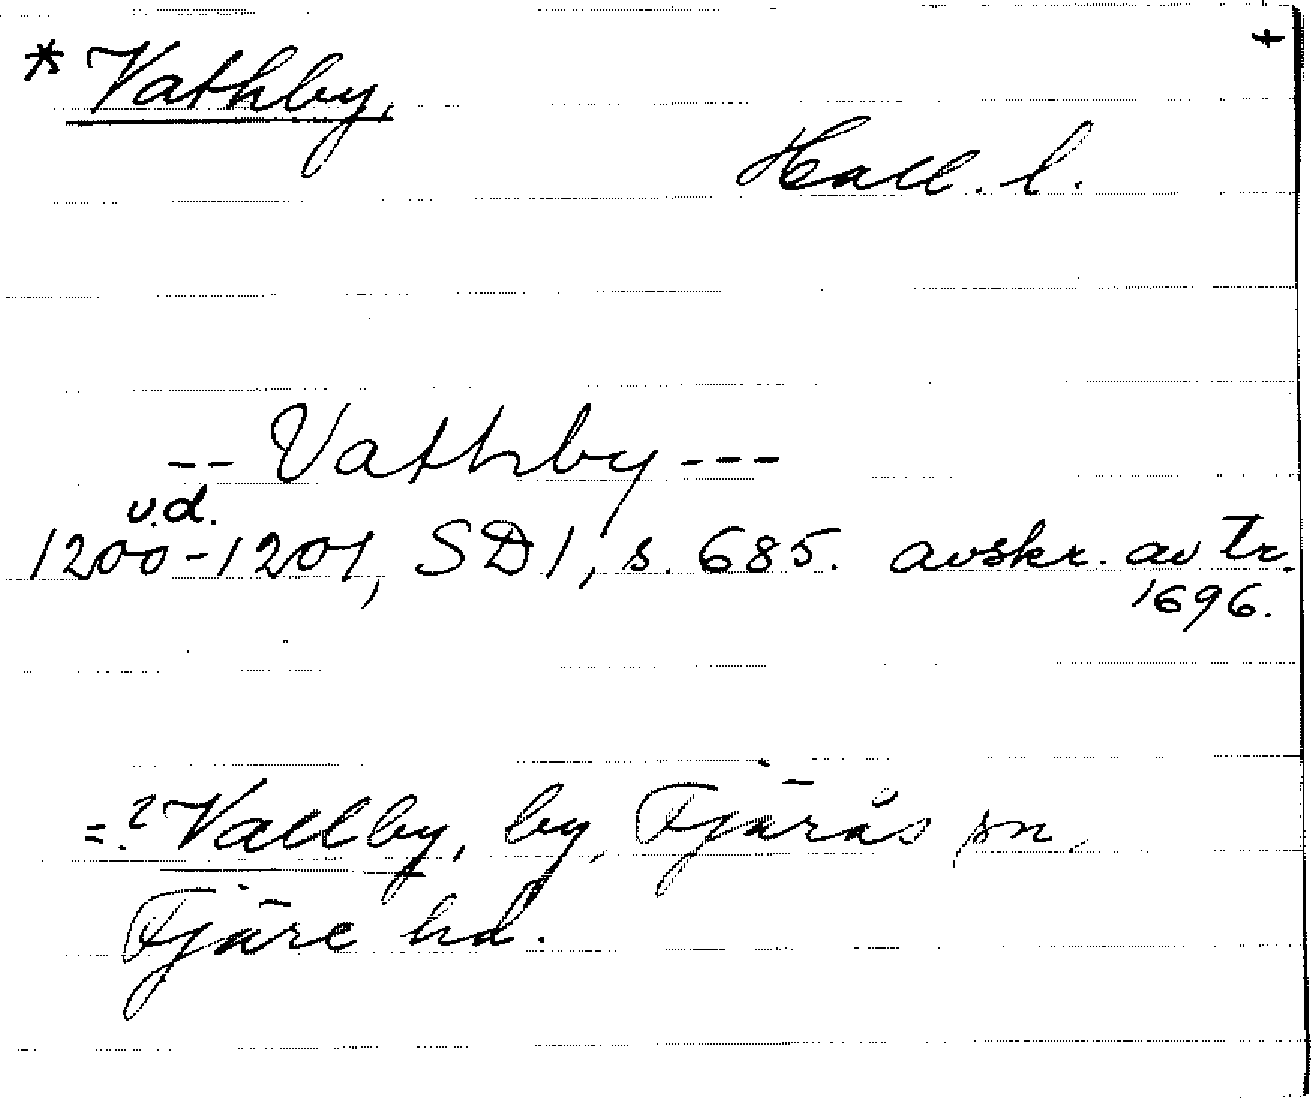 * Vathby, †
Hall. l.
-- Vathby ---
u.d.
1200-1201, SD 1, s. 685. avskr. av tr.
1696.
=? Vallby, by, Fjärås sn,
Fjäre hd.